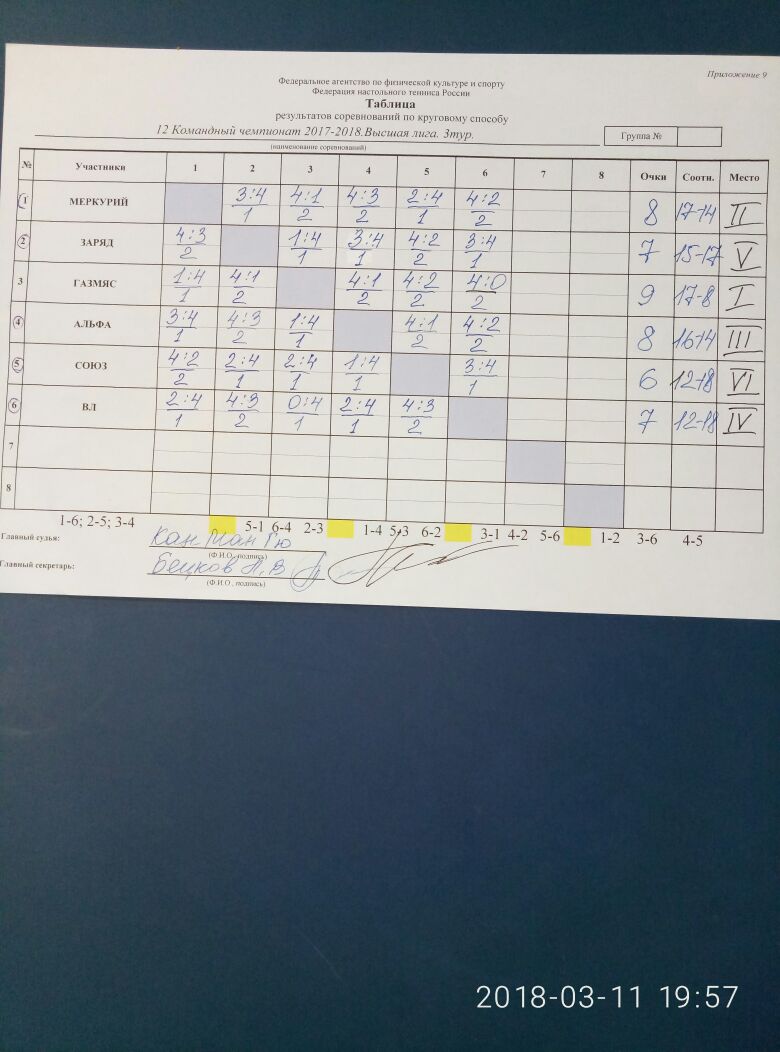 Приложение 9
Федеральное агентство по физической культуре и спорту
Федерация настольного тенниса России
Таблица
результатов соревнований по круговому способу
12 Командный чемпионат 2017-2018.Высшая лига. 3тур.
Группа №
(наименование соревнований)
№ Участники 1 2 3 4 5 6 7 8 Очки Соотн. Место
1 МЕРКУРИЙ 3:4 4:1 4:3 2:4 4:2 8 17-14 II
1 2 2 1 2
2 ЗАРЯД 4:3 1:4 3:4 4:2 3:4 7 15-17 V
2 1 1 2 1
3 ГАЗМЯС 1:4 4:1 4:1 4:2 4:0 9 17-8 I
1 2 2 2 2
4 АЛЬФА 3:4 4:3 1:4 4:1 4:2 8 16-14 III
1 2 1 2 2
5 СОЮЗ 4:2 2:4 2:4 1:4 3:4 6 12-18 VI
2 1 1 1 1
6 ВЛ 2:4 4:3 0:4 2:4 4:3 7 12-18 IV
1 2 1 1 2
7
8
1-6; 2-5; 3-4 5-1 6-4 2-3 1-4 5-3 6-2 3-1 4-2 5-6 1-2 3-6 4-5
Главный судья: Кан Ман Гю
(Ф.И.О, подпись)
Главный секретарь:
(Ф.И.О, подпись)
2018-03-11 19:57